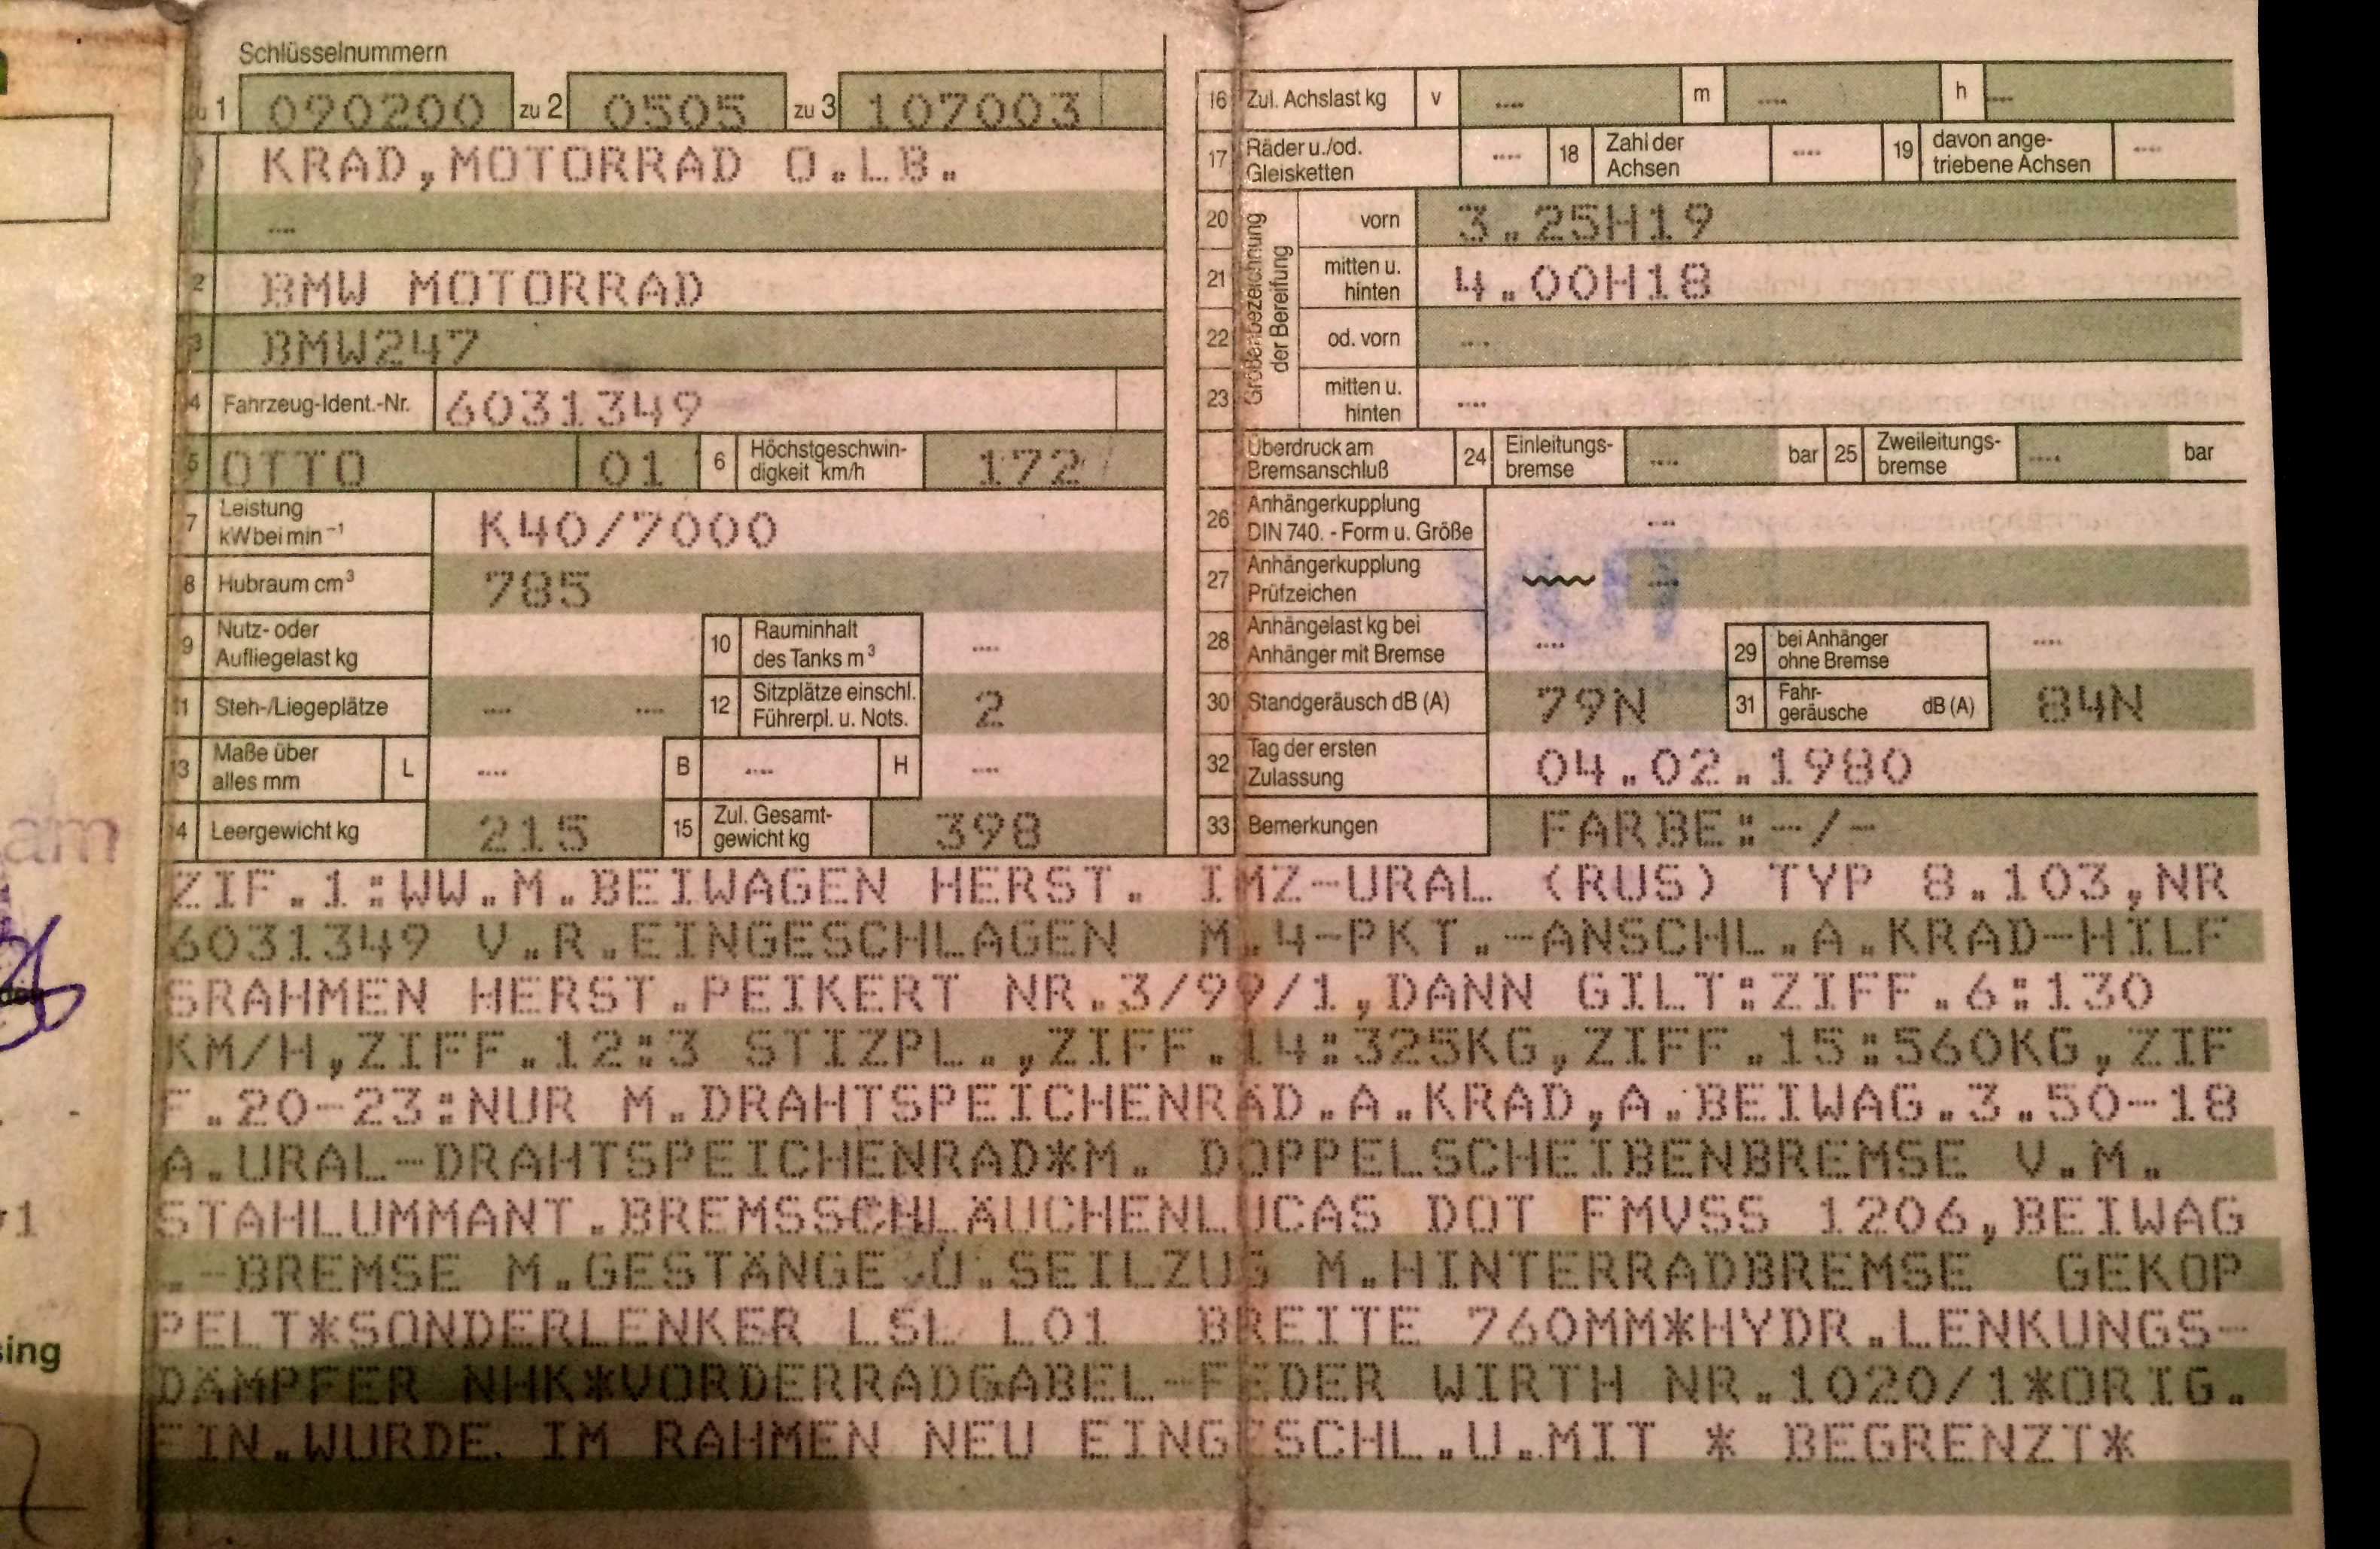 Schlüsselnummern
zu 1 090200 zu 2 0505 zu 3 107003
KRAD,MOTORRAD O.LB.
....
2 BMW MOTORRAD
3 BMW247
4 Fahrzeug-Ident.-Nr. 6031349
5 OTTO 01 6 Höchstgeschwin-
digkeit km/h 172
7 Leistung
kW bei min⁻¹ K40/7000
8 Hubraum cm³ 785
9 Nutz- oder
Aufliegelast kg 10 Rauminhalt
des Tanks m³ ....
11 Steh-/Liegeplätze .... .... 12 Sitzplätze einschl.
Führerpl. u. Nots. 2
13 Maße über
alles mm L .... B .... H ....
14 Leergewicht kg 215 15 Zul. Gesamt-
gewicht kg 398
16 Zul. Achslast kg v .... m .... h ....
17 Räder u./od.
Gleisketten .... 18 Zahl der
Achsen .... 19 davon ange-
triebene Achsen ....
Größenbezeichnung
der Bereifung
20 vorn 3.25H19
21 mitten u.
hinten 4.00H18
22 od. vorn ....
23 mitten u.
hinten ....
Überdruck am
Bremsanschluß 24 Einleitungs-
bremse .... bar 25 Zweileitungs-
bremse .... bar
26 Anhängerkupplung
DIN 740. - Form u. Größe ....
27 Anhängerkupplung
Prüfzeichen ....
28 Anhängelast kg bei
Anhänger mit Bremse .... 29 bei Anhänger
ohne Bremse ....
30 Standgeräusch dB (A) 79N 31 Fahr-
geräusche dB (A) 84N
32 Tag der ersten
Zulassung 04.02.1980
33 Bemerkungen FARBE:-/-
ZIF.1:WW.M.BEIWAGEN HERST. IMZ-URAL (RUS) TYP 8.103,NR
6031349 V.R.EINGESCHLAGEN M.4-PKT.-ANSCHL.A.KRAD-HILF
SRAHMEN HERST.PEIKERT NR.3/99/1,DANN GILT:ZIFF.6:130
KM/H,ZIFF.12:3 STIZPL.,ZIFF.14:325KG,ZIFF.15:560KG,ZIF
F.20-23:NUR M.DRAHTSPEICHENRAD.A.KRAD,A.BEIWAG.3.50-18
A.URAL-DRAHTSPEICHENRAD*M. DOPPELSCHEIBENBREMSE V.M.
STAHLUMMANT.BREMSSCHLÄUCHENLUCAS DOT FMVSS 1206,BEIWAG
.-BREMSE M.GESTÄNGE U.SEILZUG M.HINTERRADBREMSE GEKOP
PELT*SONDERLENKER LSL L01 BREITE 760MM*HYDR.LENKUNGS-
DÄMPFER NHK*VORDERRADGABEL-FEDER WIRTH NR.1020/1*ORIG.
FIN.WURDE IM RAHMEN NEU EINGESCHL.U.MIT * BEGRENZT*
am
sing